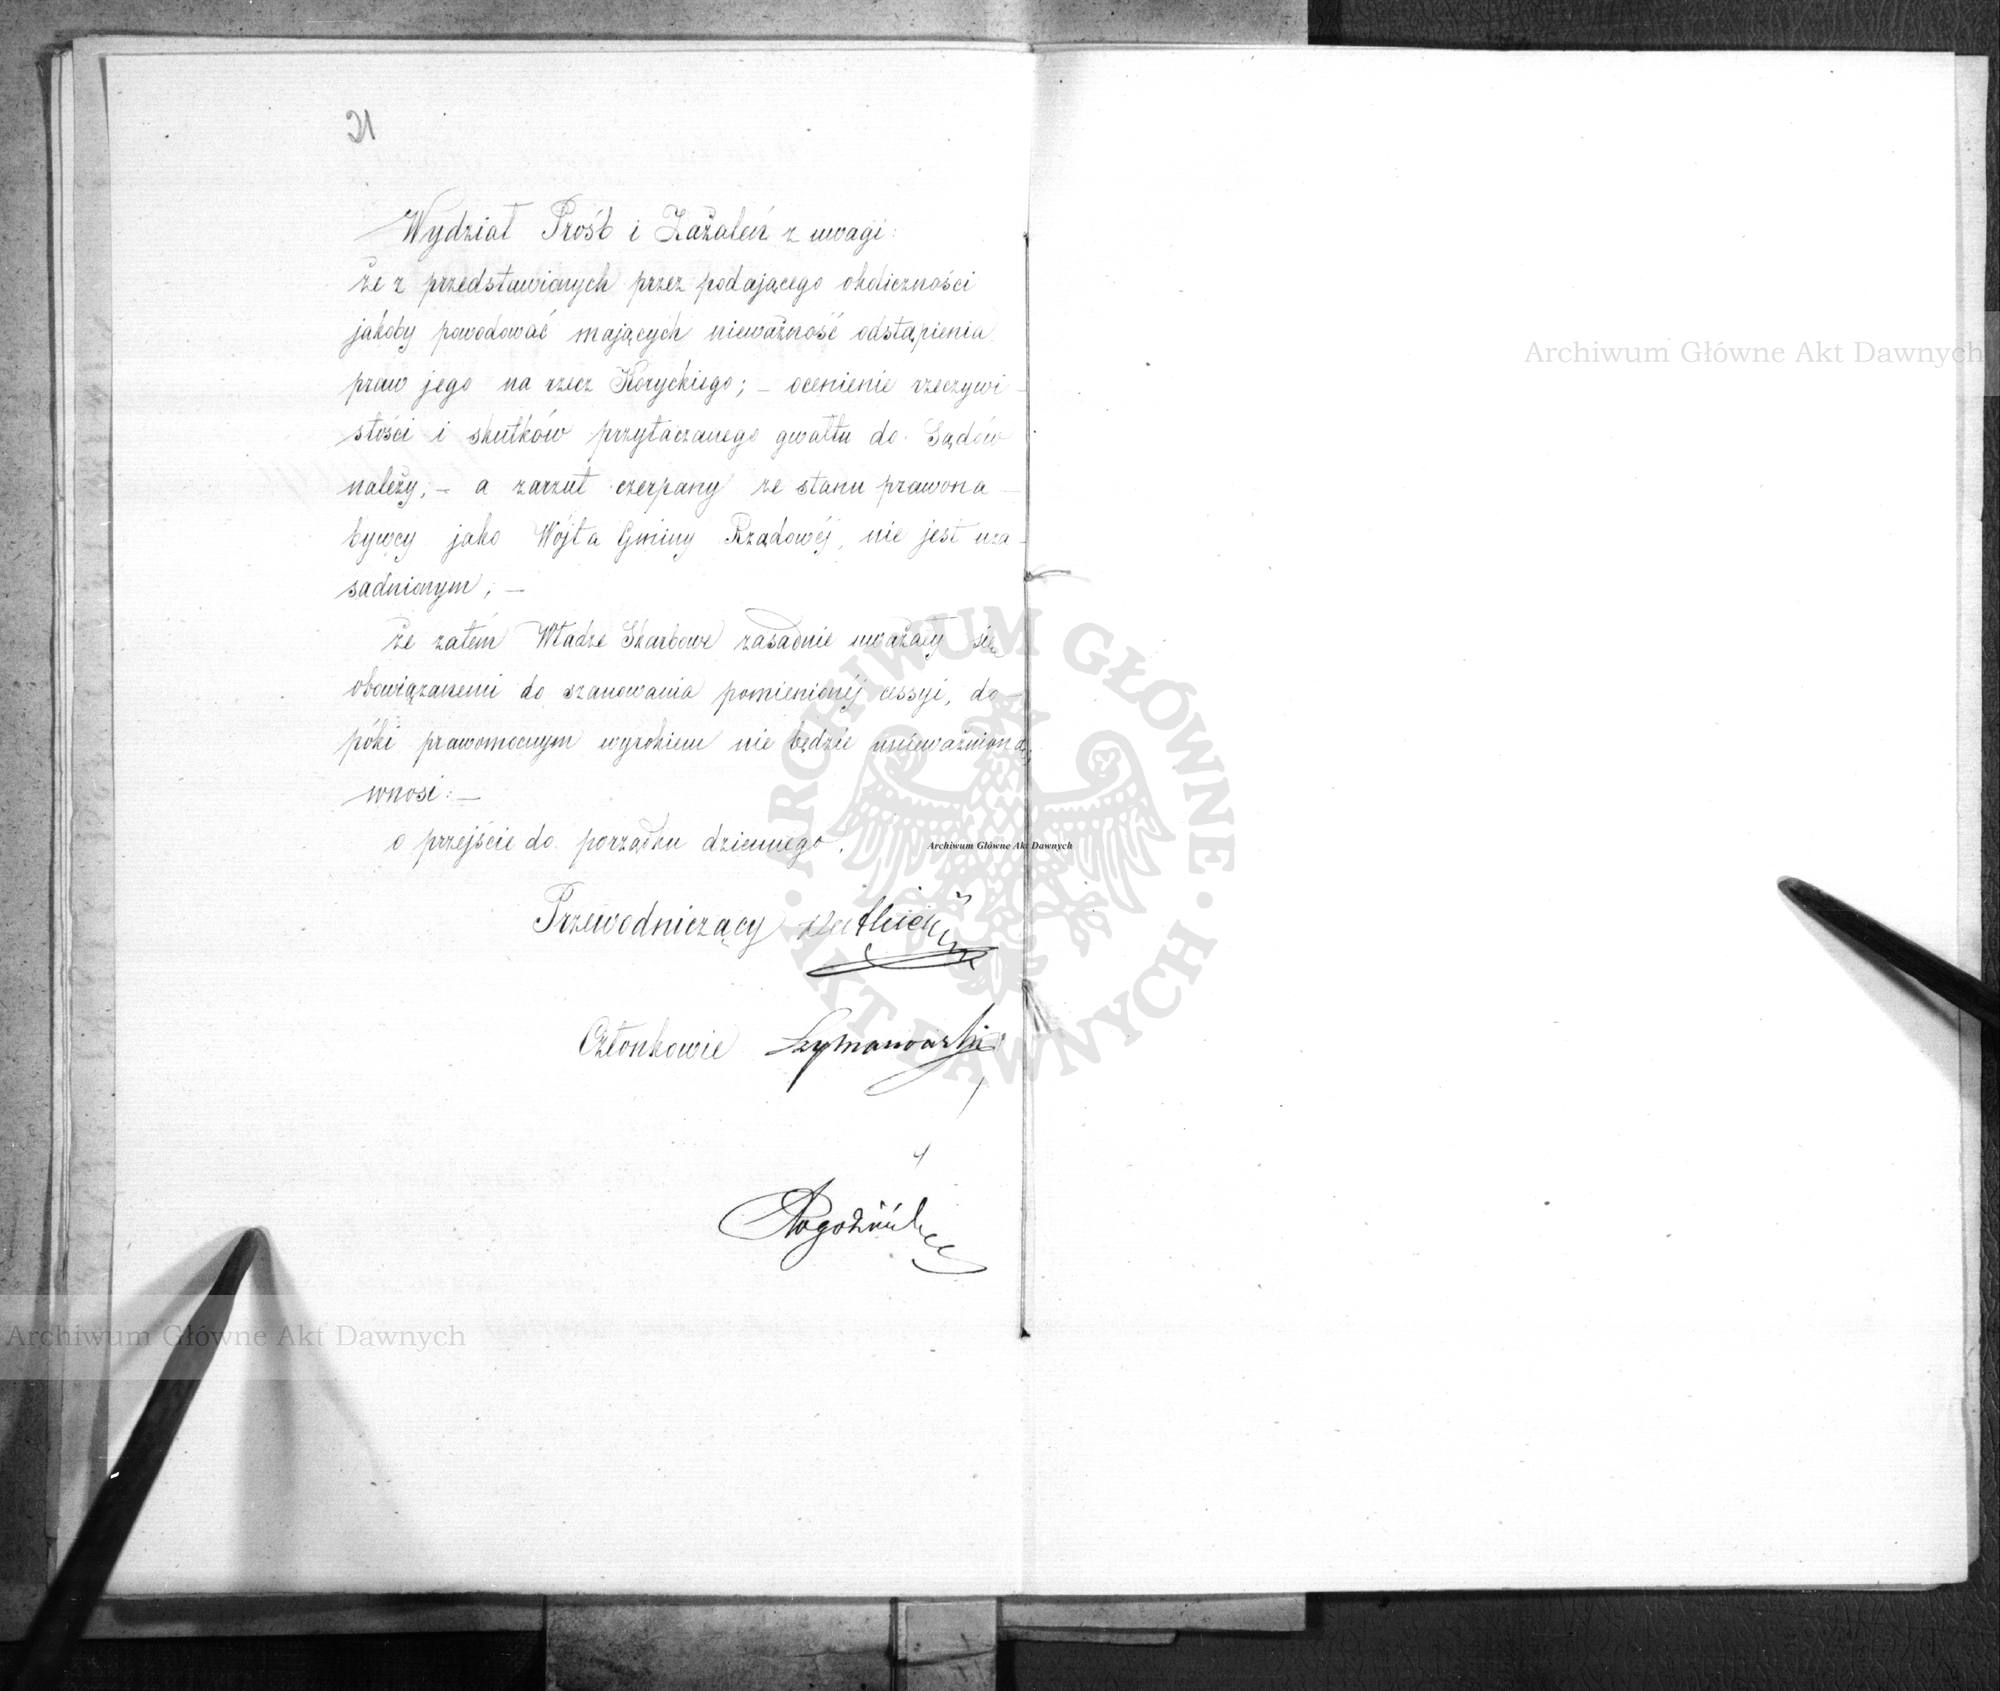 21
Wydział Prośb i Zażaleń z uwagi:
że z przedstawionych przez podającego okoliczności
jakoby powodować mających nieważność odstąpienia
praw jego na rzecz Koryckiego; – ocenienie rzeczywi-
stości i skutków przytaczanego gwałtu do Sądów
należy, – a zarzut czerpany ze stanu prawona-
bywcy jako Wójta Gminy Rządowéj, nie jest uza-
sadnionym; –
że zatém Władze Skarbowe zasadnie uważały się
obowiązanemi do szanowania pomienionéj cessyi, do-
póki prawomocnym wyrokiem nie będzie unieważnioną;
wnosi: –
o przejście do porządku dziennego.
Przewodniczący
Członkowie Szymanowski
Archiwum Główne Akt Dawnych
Archiwum Główne Akt Dawnych
Archiwum Główne Akt Dawnych
ARCHIWUM GŁÓWNE · AKT DAWNYCH ·